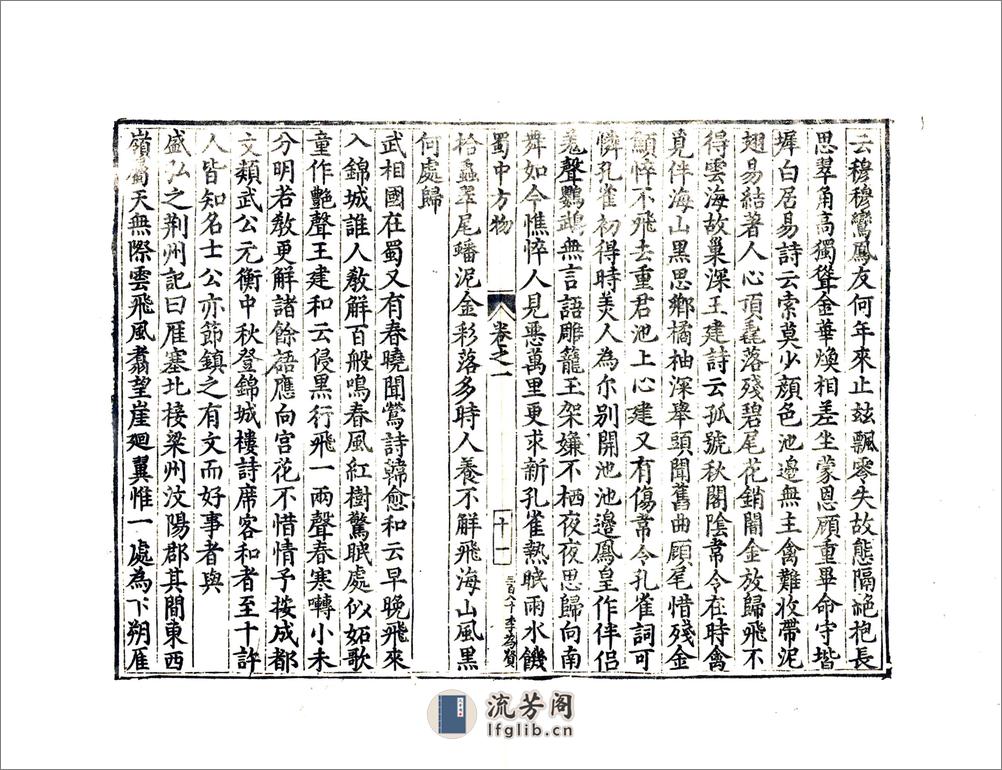 云穆穆鸞鳳友何年來止玆飄零失故態隔絶抱長
思翠角高獨聳金華煥相差坐蒙恩顧重畢命守堦
墀白居易詩云索莫少顔色池邊無主禽難收帶泥
翅易結著人心頂毳落殘碧尾花銷闇金放歸飛不
得雲海故巢深王建詩云孤號秋閣陰常令在時禽
覓伴海山黑思鄉橘柚深舉頭聞舊曲顧尾惜殘金
顦悴不飛去重君池上心建又有傷常令孔雀詞可
憐孔雀初得時美人為尔別開池池邊鳳皇作伴侣
羗聲鸚鵡無言語雕籠玉架嫌不栖夜夜思歸向南
舞如今憔悴人見悪萬里更求新孔雀熱眠雨水饑
蜀中方物 卷之一 十一 三百八十 李為贊
拾蟲翠尾蟠泥金彩落多時人養不解飛海山風黒
何處歸
武相國在蜀又有春曉聞鶯詩韓愈和云早晚飛來
入錦城誰人教解百般鳴春風紅樹驚眠處似妬歌
童作艷聲王建和云侵黑行飛一兩聲春寒囀小未
分明若教更解諸餘語應向宫花不惜情予按成都
文類武公元衡中秋登錦城樓詩席客和者至十許
人皆知名士公亦節鎮之有文而好事者與
盛弘之荆州記曰雁塞北接梁州汶陽郡其間東西
嶺屬天無際雲飛風翥望崖廻翼惟一處為下朔雁
流芳阁
lfglib.cn